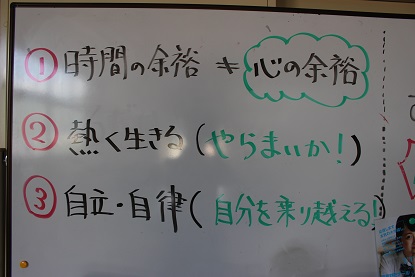 ① 時間の余裕 ≠ 心の余裕
② 熱く生きる(やらまいか!)
③ 自立・自律(自分を乗り越える!)